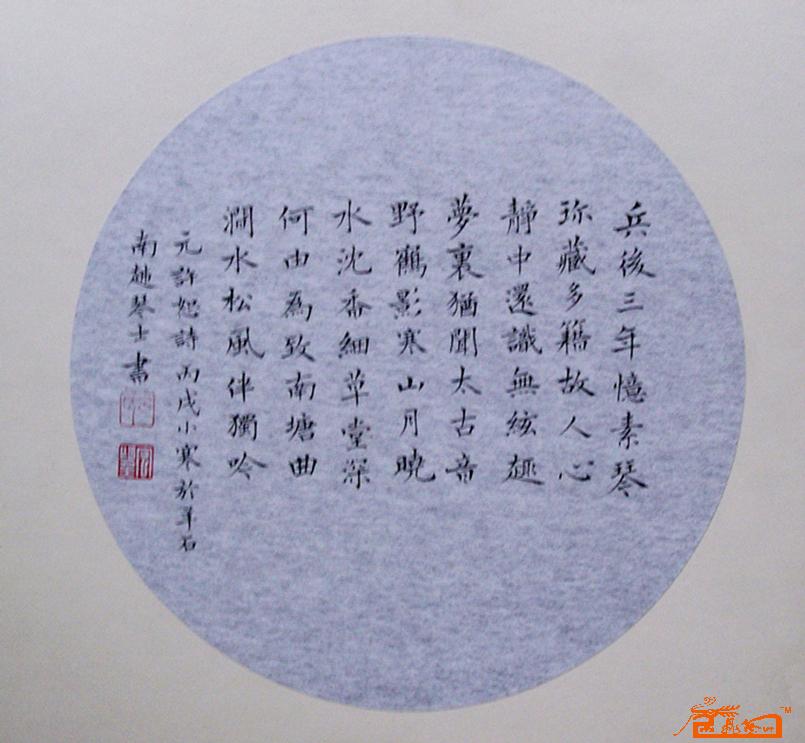 兵後三年憶素琴
珎藏多籍故人心
靜中還識無絃趣
夢裏猶聞太古音
野鶴影寒山月曉
水沈香細草堂深
何由為致南塘曲
澗水松風伴獨吟
元許恕詩丙戌小寒於羊石
南越琴士書